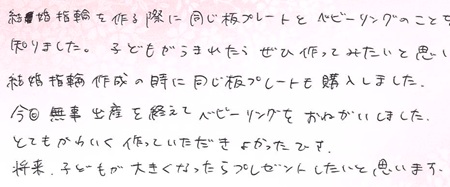 結婚指輪を作る際に同じ板プレートとベビーリングのことを
知りました。子どもがうまれたらぜひ作ってみたいと思い
結婚指輪作成の時に同じ板プレートも購入しました。
今回無事出産を終えてベビーリングをおねがいしました。
とてもかわいく作っていただきよかったです。
将来、子どもが大きくなったらプレゼントしたいと思います。